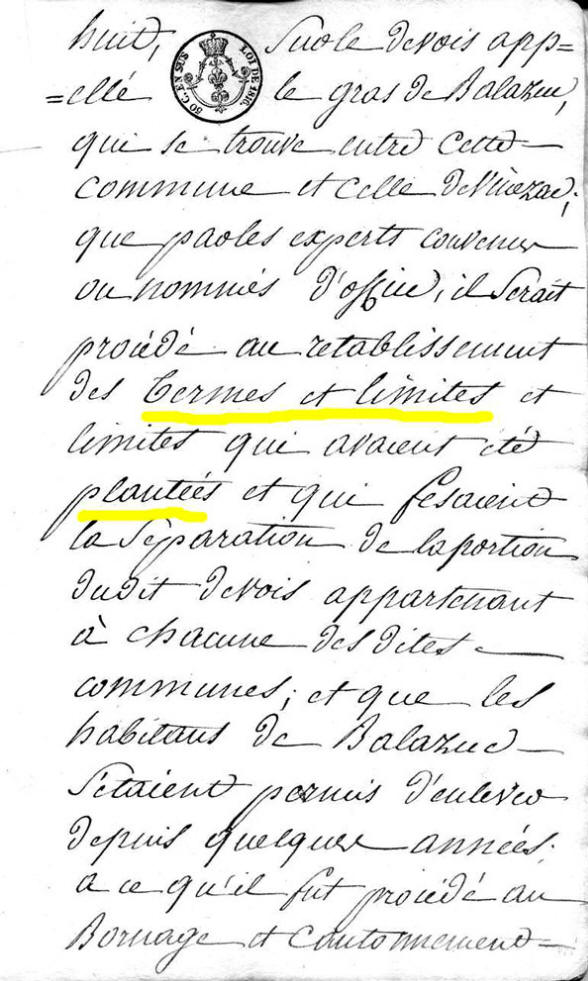 huit, Sur le devois app=
=ellé le gras de Balazuc,
50 C. EN SUS LOI DE 1816
que se trouve entre cette
commune et celle de Vinezac;
que par les experts convenus
ou nommés d'office, il serait
procédé au retablissement
des termes et limites et
limites qui avaient été
plantées et qui fesaient
la séparation de la portion
dudit devois appartenant
à chacune des dites
communes; et que les
habitans de Balazuc
s'étaient permis d'enlever
depuis quelques années;
a ce qu'il fut procédé au
Bornage et Cantonnement=